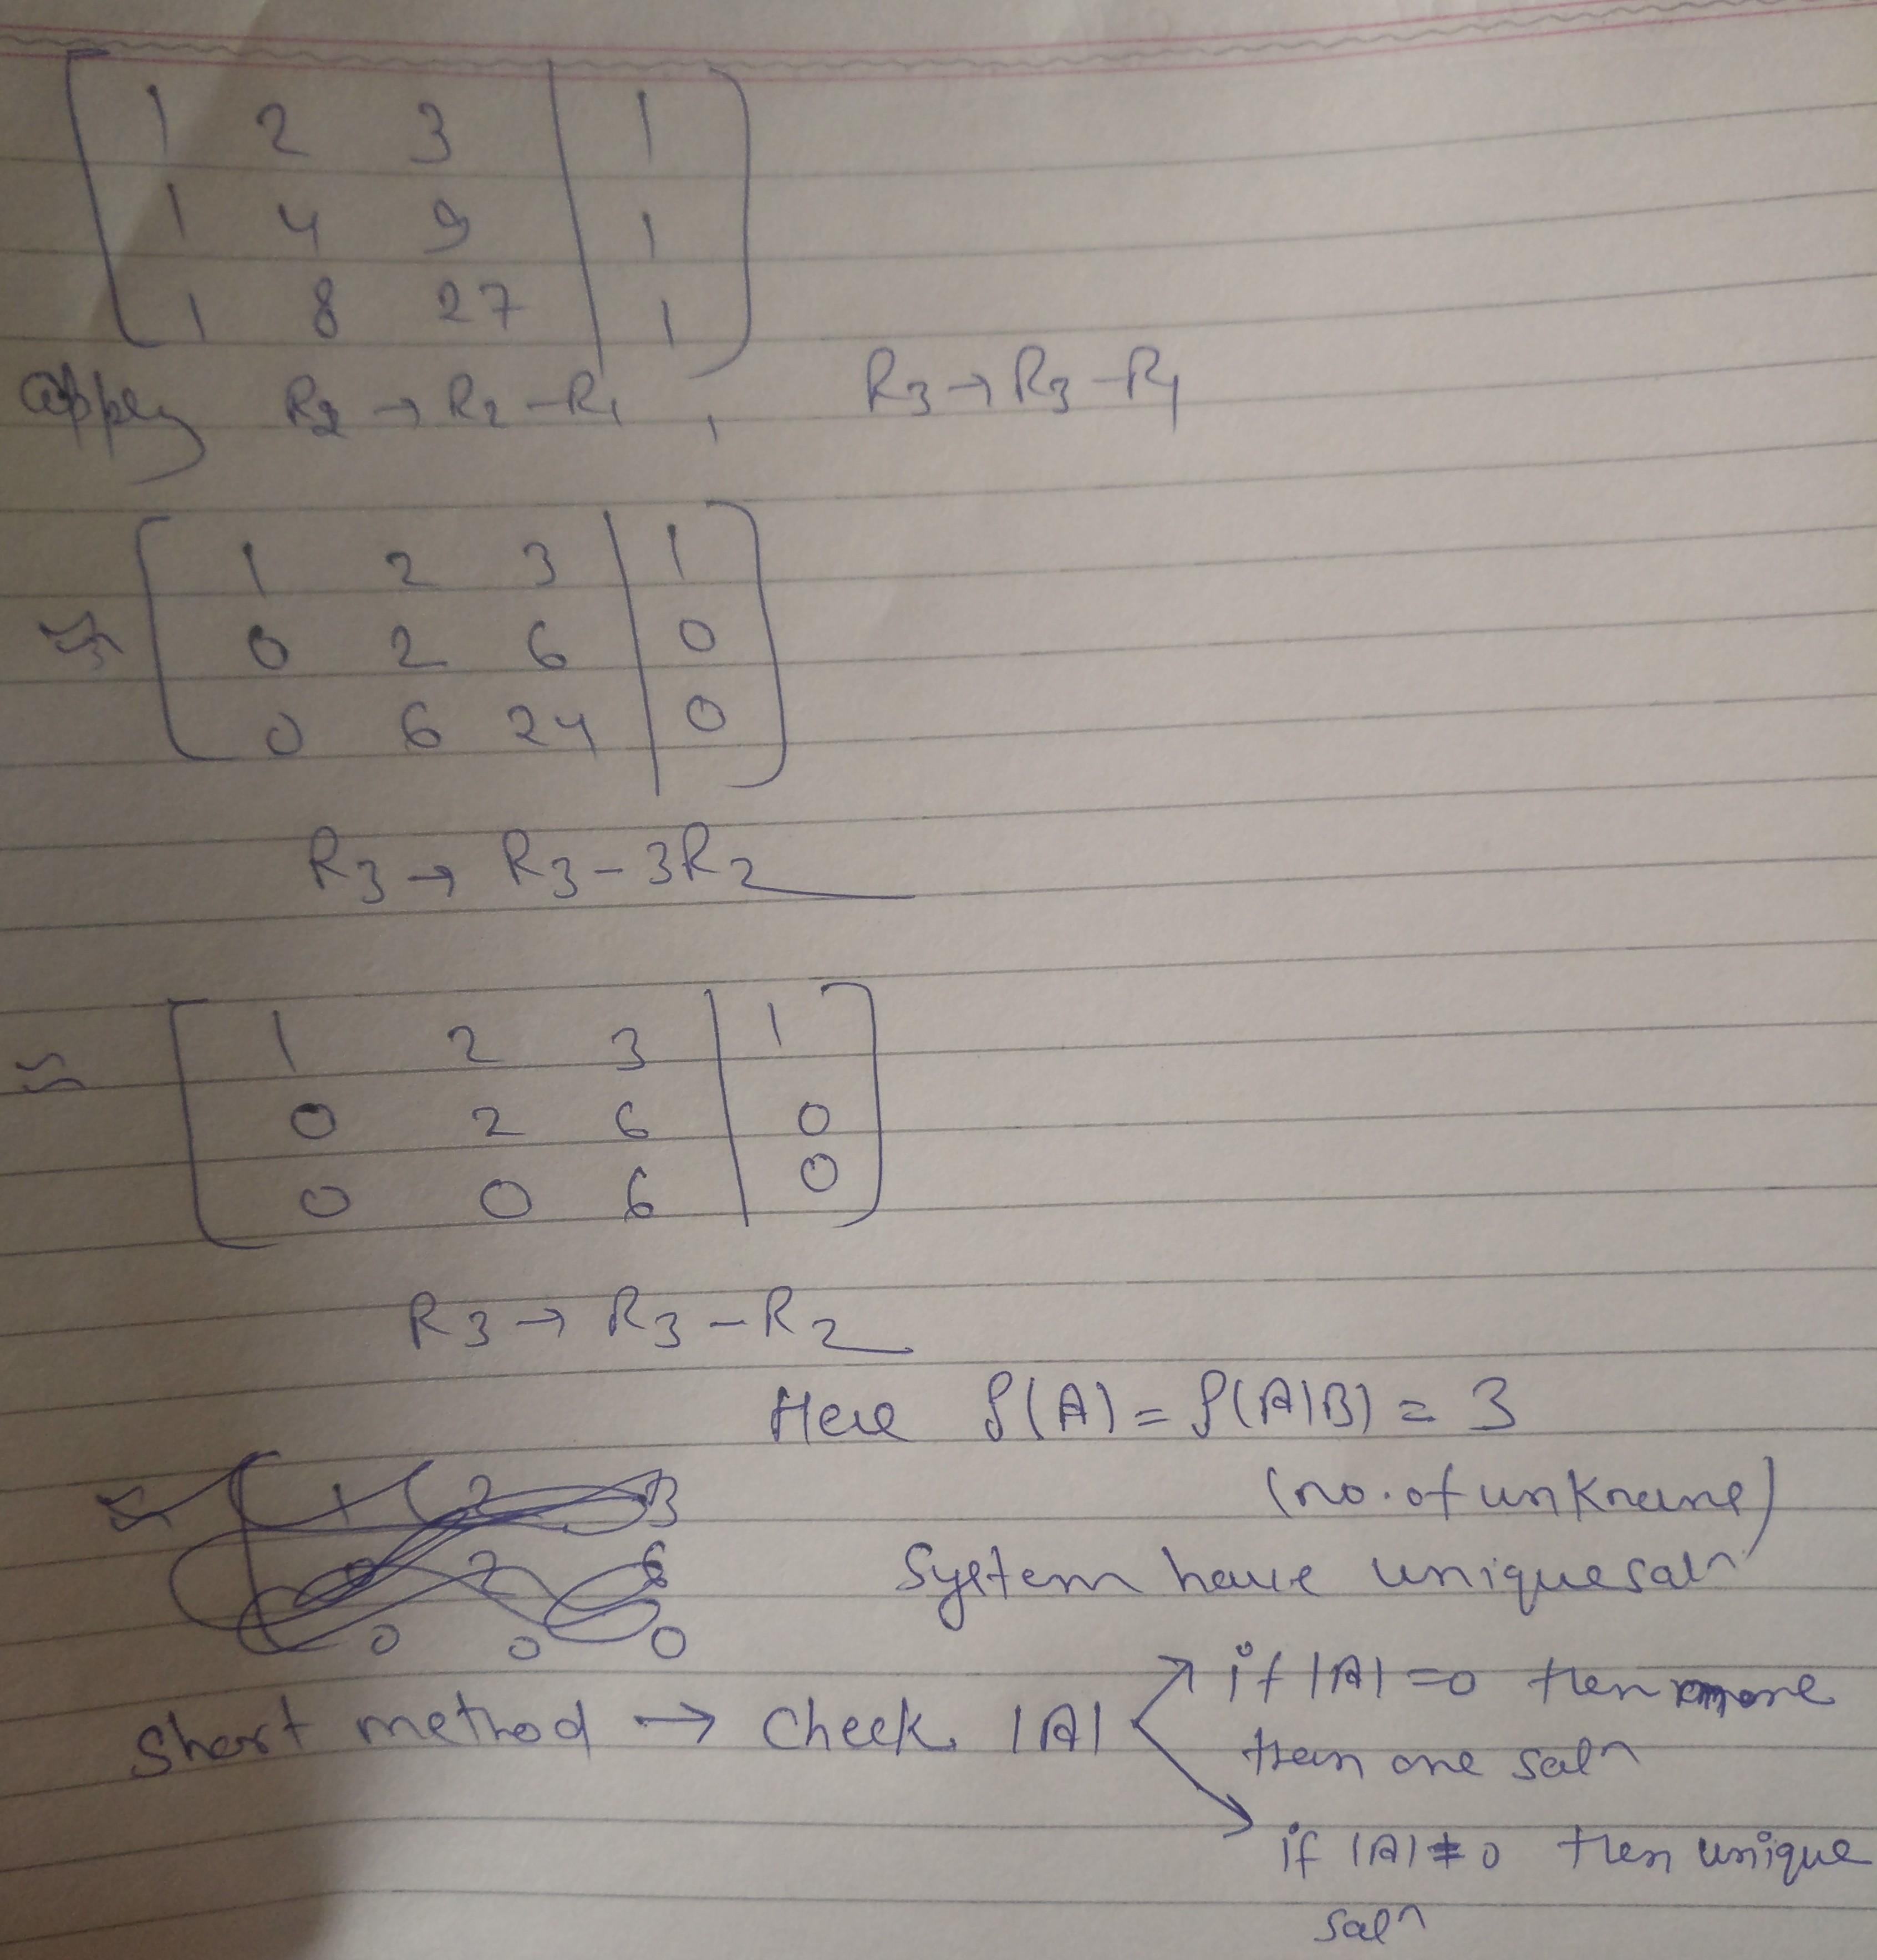 1 2 3 | 1
1 4 9 | 1
1 8 27 | 1
apply R2 → R2 - R1 , R3 → R3 - R1
≈ 1 2 3 | 1
0 2 6 | 0
0 6 24 | 0
R3 → R3 - 3R2
≈ 1 2 3 | 1
0 2 6 | 0
0 0 6 | 0
R3 → R3 - R2
Here ρ(A) = ρ(A|B) = 3
(no. of unknown)
System have unique solⁿ
Short method → Check |A| if |A| = 0 then more
than one solⁿ
if |A| ≠ 0 then unique
solⁿ